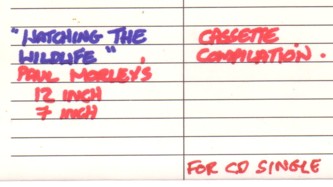 "WATCHING THE
WILDLIFE"
PAUL MORLEY'S
12 INCH
7 INCH
CASSETTE
COMPILATION.
FOR CD SINGLE